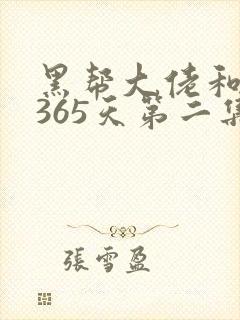 黑帮大佬和
365天第二集
張雪盈